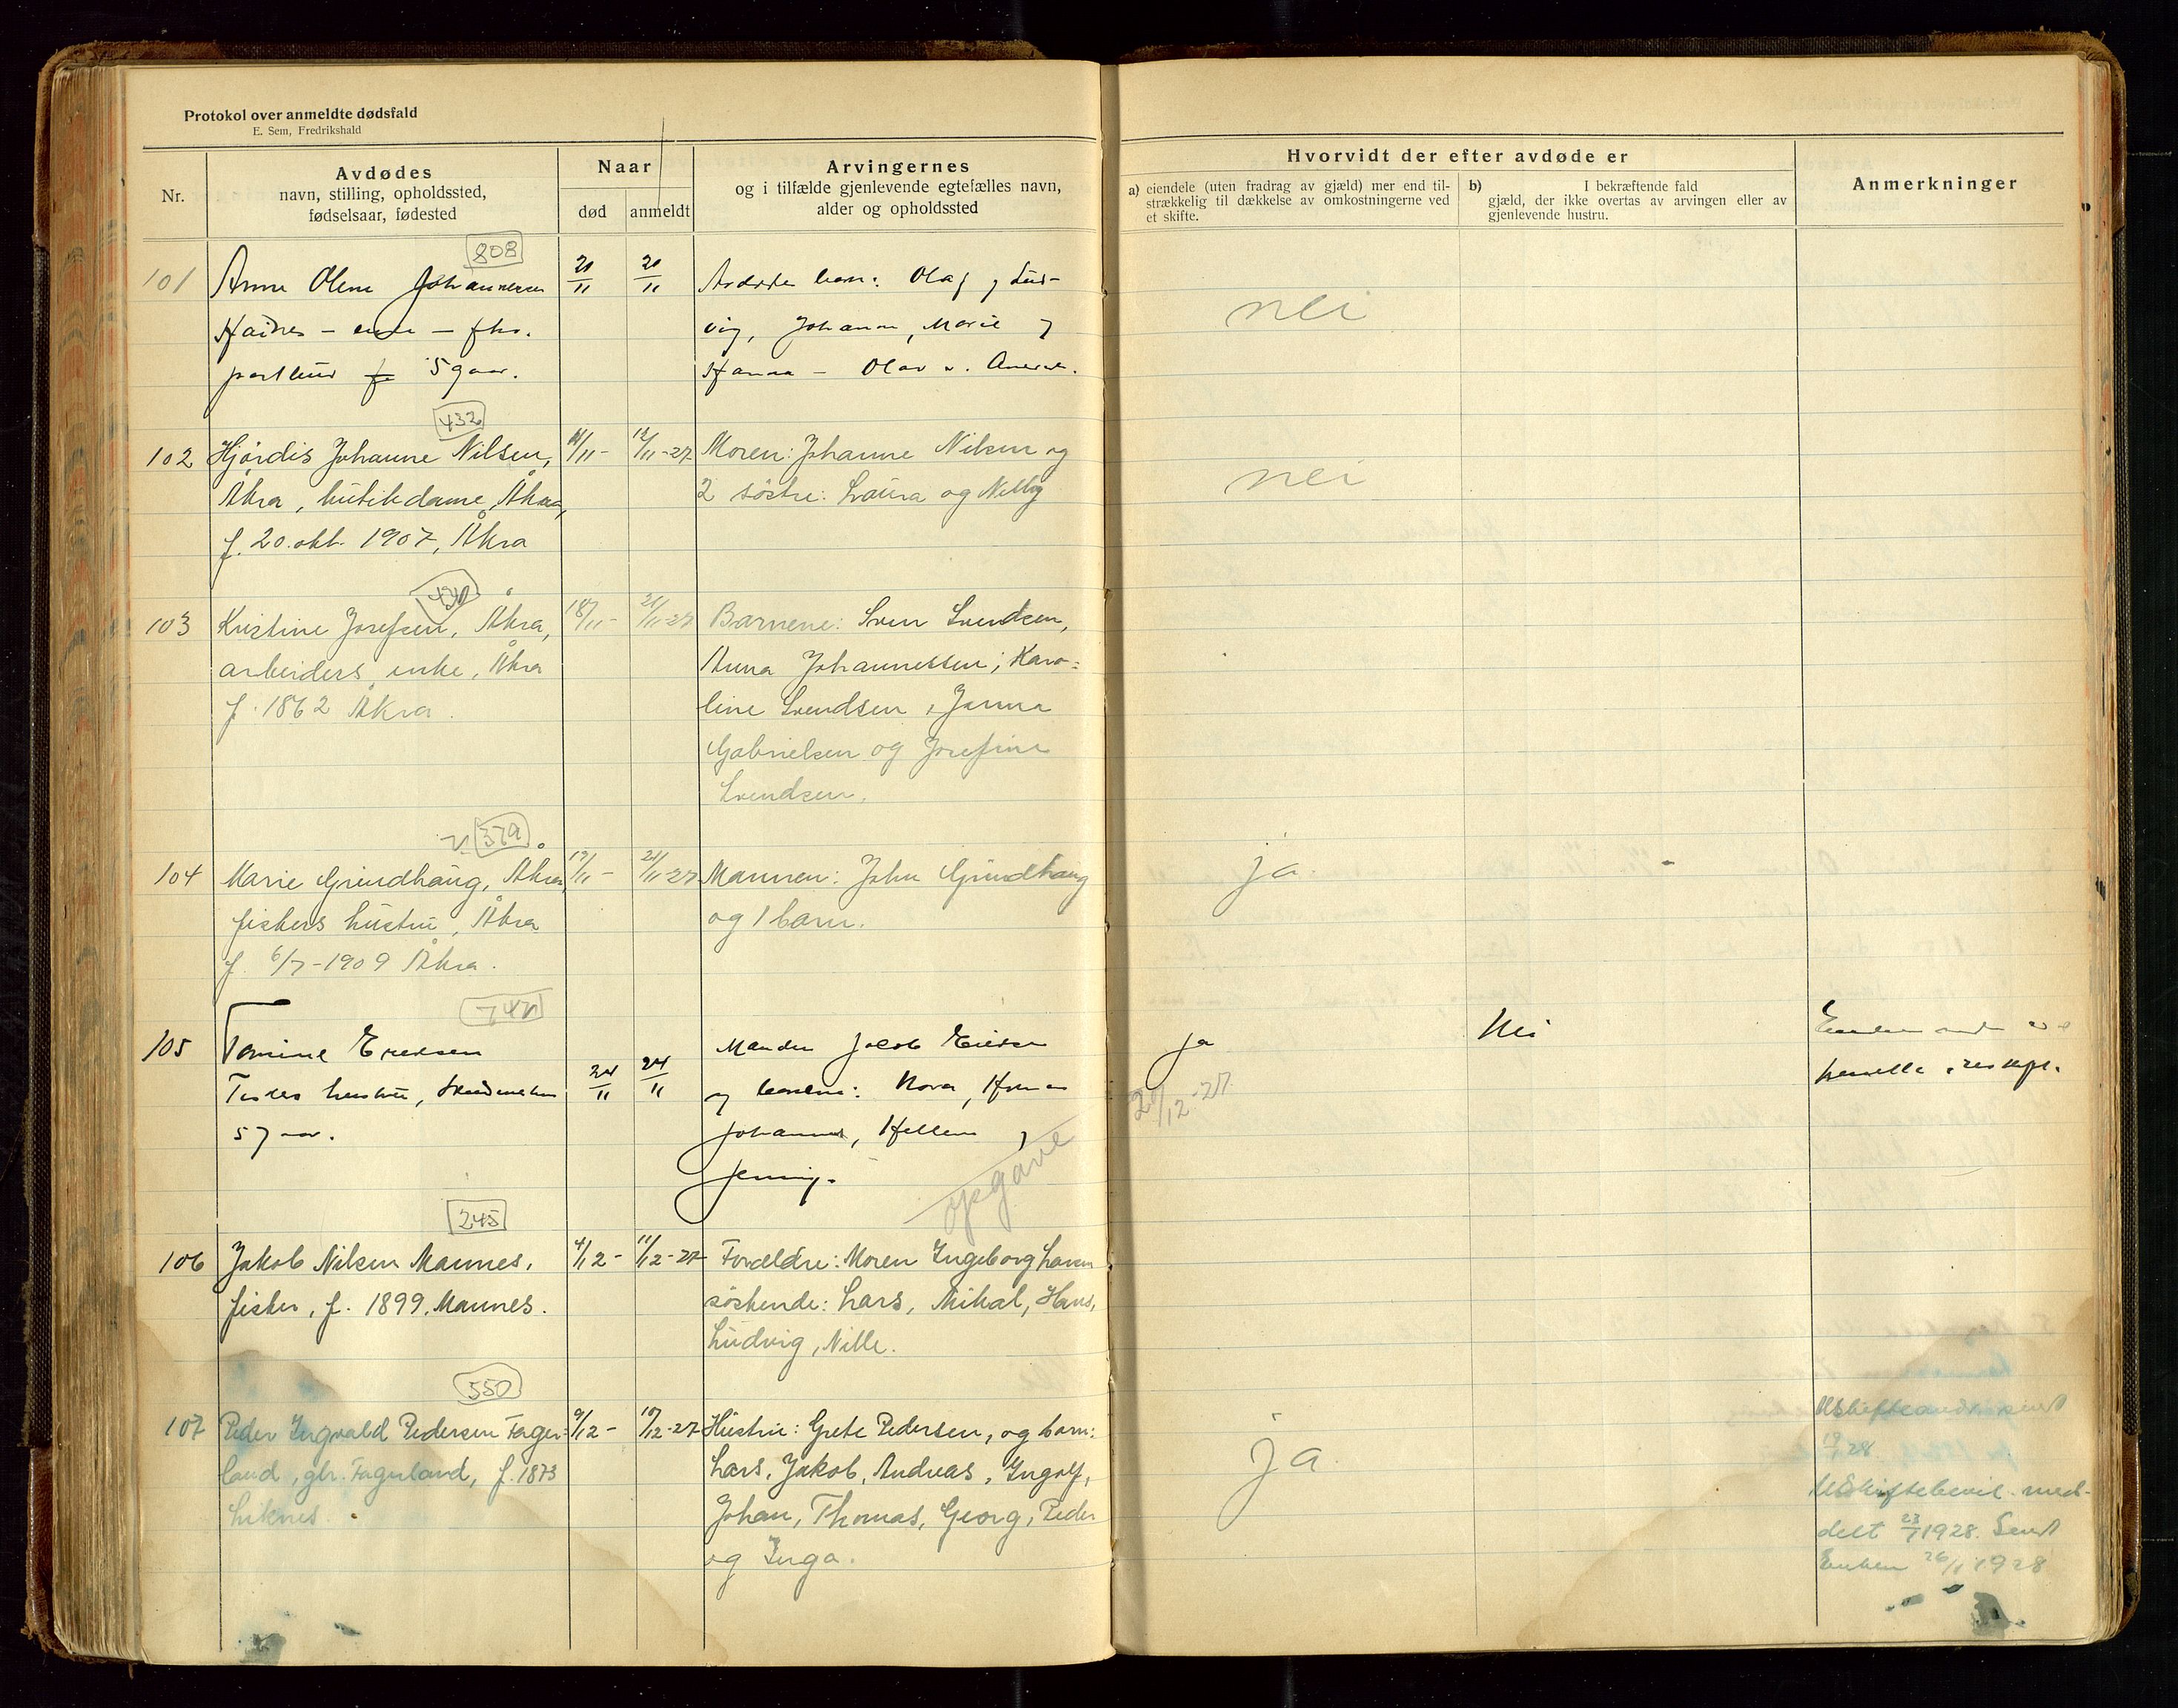 Protokol over anmeldte dødsfald
E. Sem, Fredrikshald
Nr.
Avdødes
navn, stilling, opholdssted,
fødselsaar, fødested
Naar
død
anmeldt
Arvingernes
og i tilfælde gjenlevende egtefælles navn,
alder og opholdssted
Hvorvidt der efter avdøde er
a) eiendele (uten fradrag av gjæld) mer end til-
strækkelig til dækkelse av omkostningerne ved
et skifte.
b) I bekræftende fald
gjæld, der ikke overtas av arvingen eller av
gjenlevende hustru.
Anmerkninger
808
101
Anne Olene Johannesen
59 aar.
21/11
21/11
barn: Olaf og Lud-
vig, Johanne, Marie og
Hanna - Olav
nei
432
102
Hjördis Johanne Nilsen,
Åkra, butikdame, Åkra,
f. 20. okt. 1907, Åkra
14/11 -
12/11 - 27
Moren: Johanne Nilsen og
2 söstre: Laura og Nelly
nei
430
103
Kristine Josefsen, Åkra,
arbeiders enke, Åkra
f. 1862 Åkra.
18/11 -
21/11 - 27
Barnene: Sven Svendsen,
Anna Johannessen, Karo=
line Svendsen, Janna
Gabrielsen og Josefine
Svendsen.
379
104
Marie Grindhaug, Åkra,
fiskers hustru, Åkra
f. 6/7 - 1909 Åkra.
17/11 -
21/11 - 27
Mannen: John Grindhaug
og 1 barn.
ja.
-
742
105
Tomine Eriksen
hustru,
57 aar.
24/11
24/11
Manden Jacob Eriksen
og barnene: Nora,
Johannes, Hellen og
Jenny.
opgave
ja
20/12 - 27.
Nei
245
106
Jakob Nilsen Mannes,
fisker, f. 1899, Mannes.
4/12 -
11/12 - 27
Forældre: Moren Ingeborg Larsen
söskende: Lars, Mikal, Hans,
Ludvig, Nille.
550
107
Peder Ingvald Pedersen Fager=
land, gbr. Fagerland, f. 1873
Liknes.
9/12 -
10/12 - 27
Hustru: Grete Pedersen, og barn:
Lars, Jakob, Andreas, Ingolf,
Johan, Thomas, Georg, Peder
og Inga.
ja.
Uskifteandr. sendt
19/1 28.
Uskiftebevil. med-
delt 23/1 1928. Sendt
Enken 26/1 1928